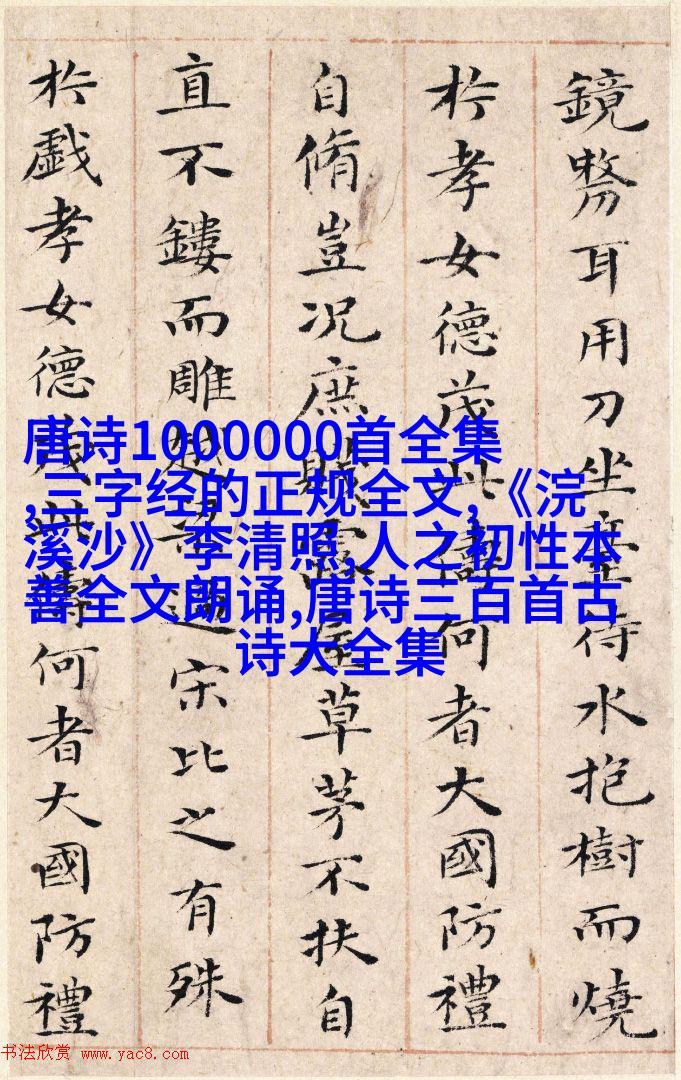 鏡剺耳用刀坐臺待水抱樹而燒
於孝女德茂此儔何者大國防禮
自脩豈況庶賤露屋草茅不扶自
直不鏤而雕越梁過宋比之有殊
於戲孝女德茂此儔何者大國防禮
唐诗1000000首全集
,三字经的正规全文,《浣
溪沙》李清照,人之初性本
善全文朗诵,唐诗三百首古
诗大全集
书法欣赏 www.yac8.com